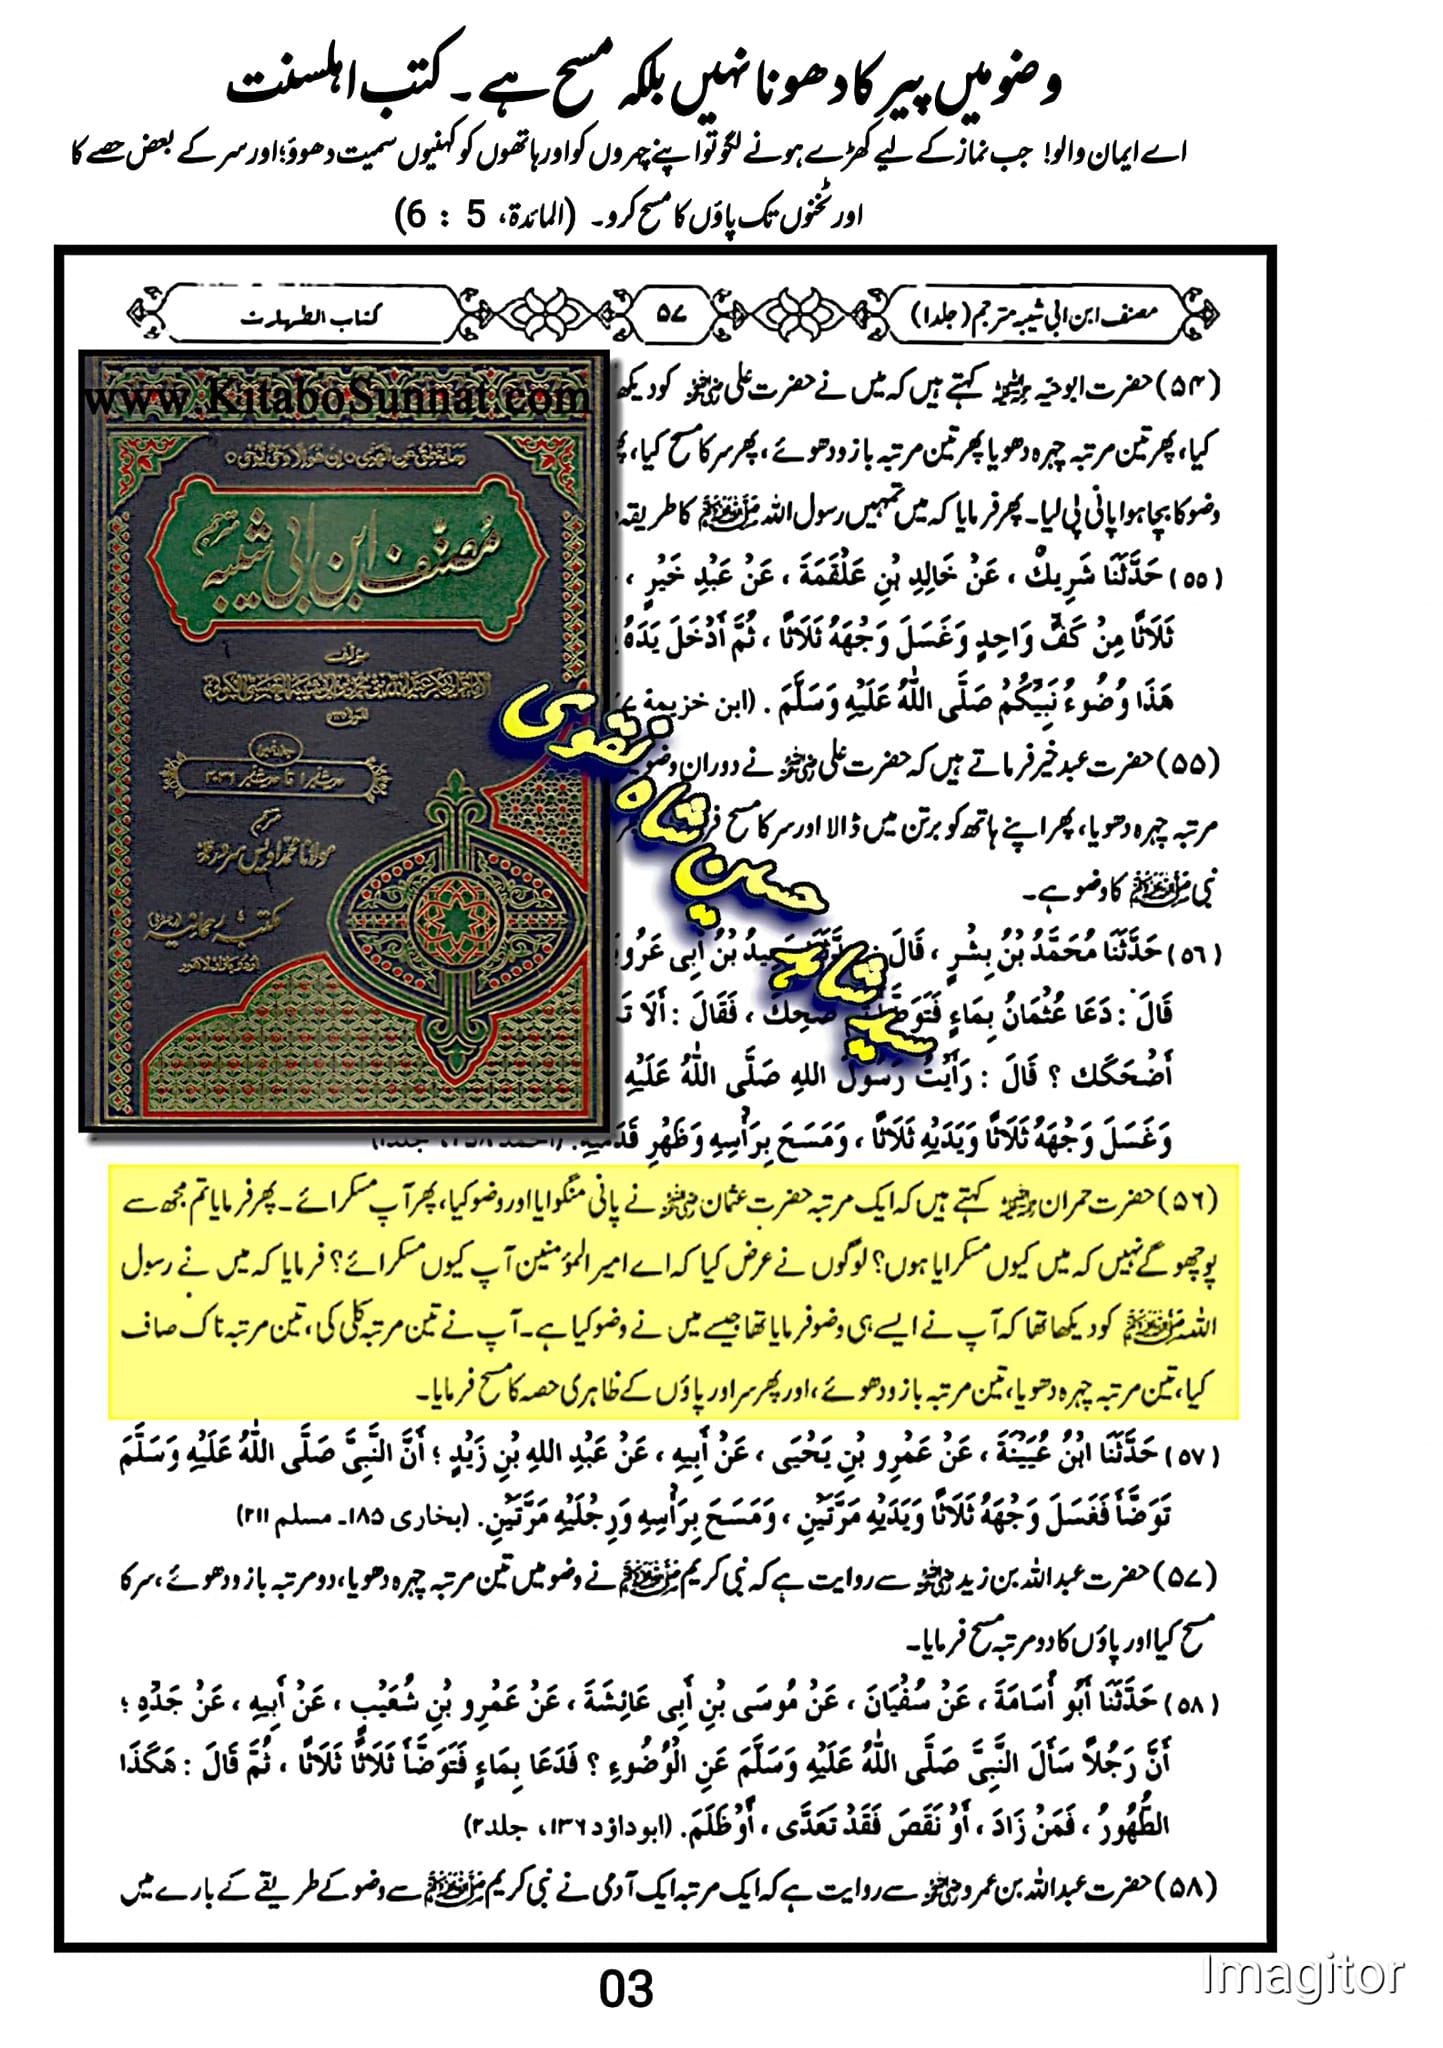 وضو میں پیر کا دھونا نہیں بلکہ مسح ہے۔ کتب اہلسنت
اے ایمان والو! جب نماز کے لیے کھڑے ہونے لگو تو اپنے چہروں کو اور ہاتھوں کو کہنیوں سمیت دھوؤ؛ اور سر کے بعض حصے کا
اور ٹخنوں تک پاؤں کا مسح کرو۔ (المائدۃ، 5 : 6)
مصنف ابن ابی شیبہ مترجم (جلد۱)
۵۷
کتاب الطہارت
(۵۴) حضرت ابوحیہ کہتے ہیں کہ میں نے حضرت علی کو دیکھ
کیا، پھر تین مرتبہ چہرہ دھویا پھر تین مرتبہ بازو دھوئے، پھر سر کا مسح کیا،
وضو کا بچا ہوا پانی پی لیا۔ پھر فرمایا کہ میں تمہیں رسول اللہ ﷺ کا طریقہ
(۵۵) حَدَّثَنَا شَرِيكٌ ، عَنْ خَالِدِ بْنِ عَلْقَمَةَ ، عَنْ عَبْدِ خَيْرٍ ،
ثَلَاثًا مِنْ كَفٍّ وَاحِدٍ وَغَسَلَ وَجْهَهُ ثَلَاثًا ، ثُمَّ أَدْخَلَ يَدَهُ
هَذَا وُضُوءُ نَبِيِّكُمْ صَلَّى اللَّهُ عَلَيْهِ وَسَلَّمَ . (ابن خزیمة
(۵۵) حضرت عبد خیر فرماتے ہیں کہ حضرت علی نے دوران وضو
مرتبہ چہرہ دھویا، پھر اپنے ہاتھ کو برتن میں ڈالا اور سر کا مسح
نبی ﷺ کا وضو ہے۔
(۵۶) حَدَّثَنَا مُحَمَّدُ بْنُ بِشْرٍ ، قَالَ بْنُ أَبِي عَرُو
قَالَ : دَعَا عُثْمَانُ بِمَاءٍ فَتَوَضَّأَ ضَحِكَ ، فَقَالَ : أَلَا
أَضْحَكَكَ ؟ قَالَ : رَأَيْتُ رَسُولَ اللهِ صَلَّى اللَّهُ عَلَيْهِ
وَغَسَلَ وَجْهَهُ ثَلَاثًا وَيَدَيْهِ ثَلَاثًا ، وَمَسَحَ بِرَأْسِهِ وَظَهْرِ قَدَمَيْهِ.
www.KitaboSunnat.com
مُصنّف ابن ابی شیبہ
مترجم
مؤلف
مترجم
مولانا محمد اویس سرور
مکتبہ رحمانیہ
سید شاہد حسین شاہ نقوی
(۵۶) حضرت حمران کہتے ہیں کہ ایک مرتبہ حضرت عثمان نے پانی منگوایا اور وضو کیا، پھر آپ مسکرائے۔ پھر فرمایا تم مجھ سے
پوچھو گے نہیں کہ میں کیوں مسکرایا ہوں؟ لوگوں نے عرض کیا کہ اے امیر المؤمنین آپ کیوں مسکرائے؟ فرمایا کہ میں نے رسول
اللہ ﷺ کو دیکھا تھا کہ آپ نے ایسے ہی وضو فرمایا تھا جیسے میں نے وضو کیا ہے۔ آپ نے تین مرتبہ کلی کی، تین مرتبہ ناک صاف
کیا، تین مرتبہ چہرہ دھویا، تین مرتبہ بازو دھوئے، اور پھر سر اور پاؤں کے ظاہری حصہ کا مسح فرمایا۔
(۵۷) حَدَّثَنَا ابْنُ عُيَيْنَةَ ، عَنْ عَمْرِو بْنِ يَحْيَى ، عَنْ أَبِيهِ ، عَنْ عَبْدِ اللهِ بْنِ زَيْدٍ ؛ أَنَّ النَّبِيَّ صَلَّى اللَّهُ عَلَيْهِ وَسَلَّمَ
تَوَضَّأَ فَغَسَلَ وَجْهَهُ ثَلَاثًا وَيَدَيْهِ مَرَّتَيْنِ ، وَمَسَحَ بِرَأْسِهِ وَرِجْلَيْهِ مَرَّتَيْنِ. (بخاری ۱۸۵۔ مسلم ۲۱۱)
(۵۷) حضرت عبد اللہ بن زید سے روایت ہے کہ نبی کریم ﷺ نے وضو میں تین مرتبہ چہرہ دھویا، دو مرتبہ بازو دھوئے، سر کا
مسح کیا اور پاؤں کا دو مرتبہ مسح فرمایا۔
(۵۸) حَدَّثَنَا أَبُو أُسَامَةَ ، عَنْ سُفْيَانَ ، عَنْ مُوسَى بْنِ أَبِي عَائِشَةَ ، عَنْ عَمْرِو بْنِ شُعَيْبٍ ، عَنْ أَبِيهِ ، عَنْ جَدِّهِ ؛
أَنَّ رَجُلاً سَأَلَ النَّبِيَّ صَلَّى اللَّهُ عَلَيْهِ وَسَلَّمَ عَنِ الْوُضُوءِ ؟ فَدَعَا بِمَاءٍ فَتَوَضَّأَ ثَلَاثًا ثَلَاثًا ، ثُمَّ قَالَ : هَكَذَا
الطُّهُورُ ، فَمَنْ زَادَ ، أَوْ نَقَصَ فَقَدْ تَعَدَّى ، أَوْ ظَلَمَ. (ابوداؤد ۱۳۶، جلد۲)
(۵۸) حضرت عبد اللہ بن عمرو سے روایت ہے کہ ایک مرتبہ ایک آدمی نے نبی کریم ﷺ سے وضو کے طریقے کے بارے میں
03
Imagitor